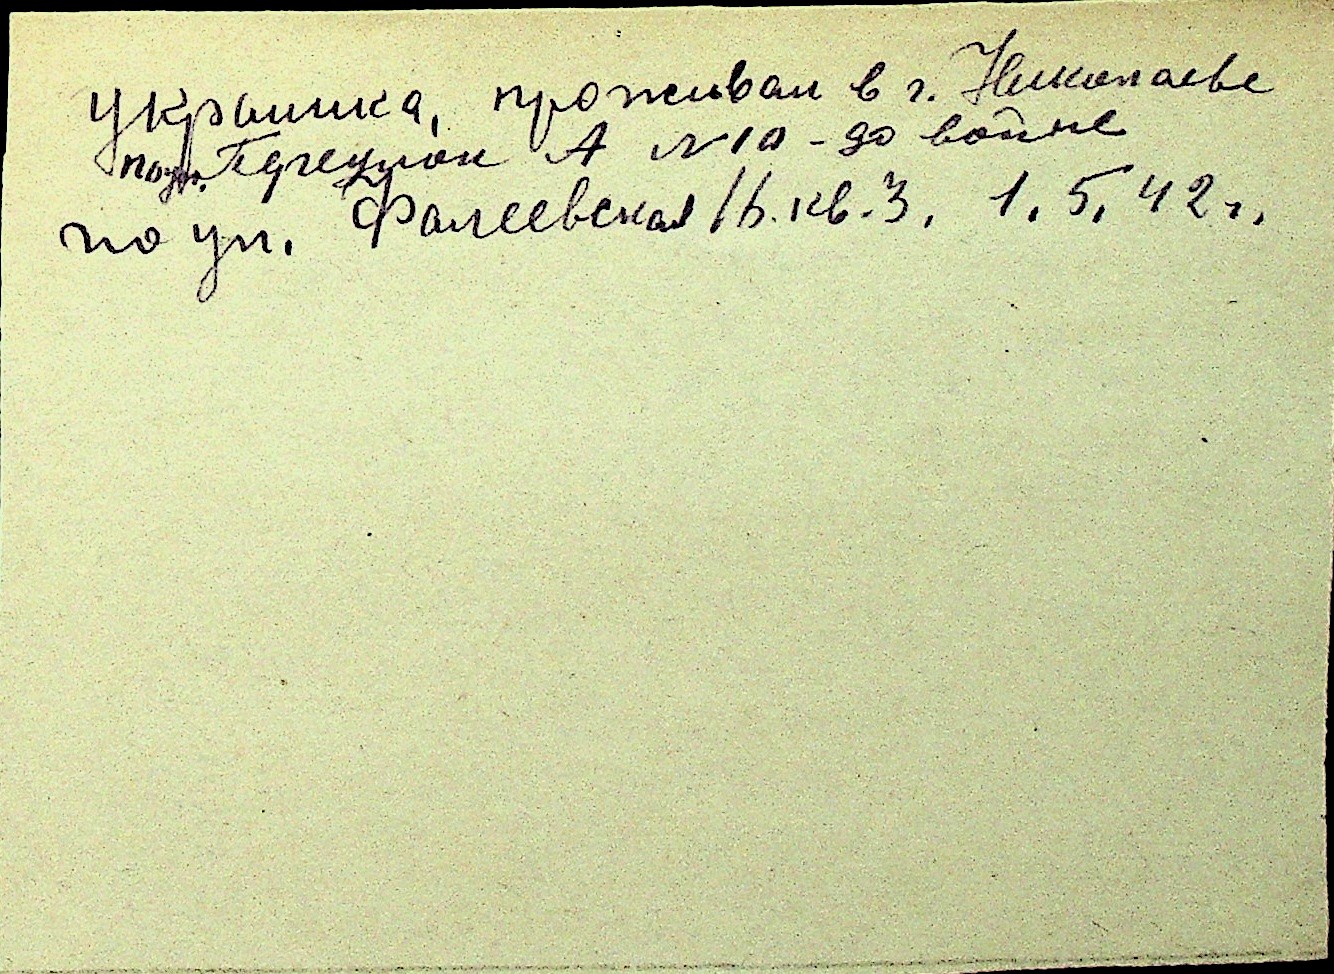 украинка, проживал в г. Николаеве
по ул. А № 10 - до войне
по ул. Фалеевская 16. кв. 3. 1.5.42 г.